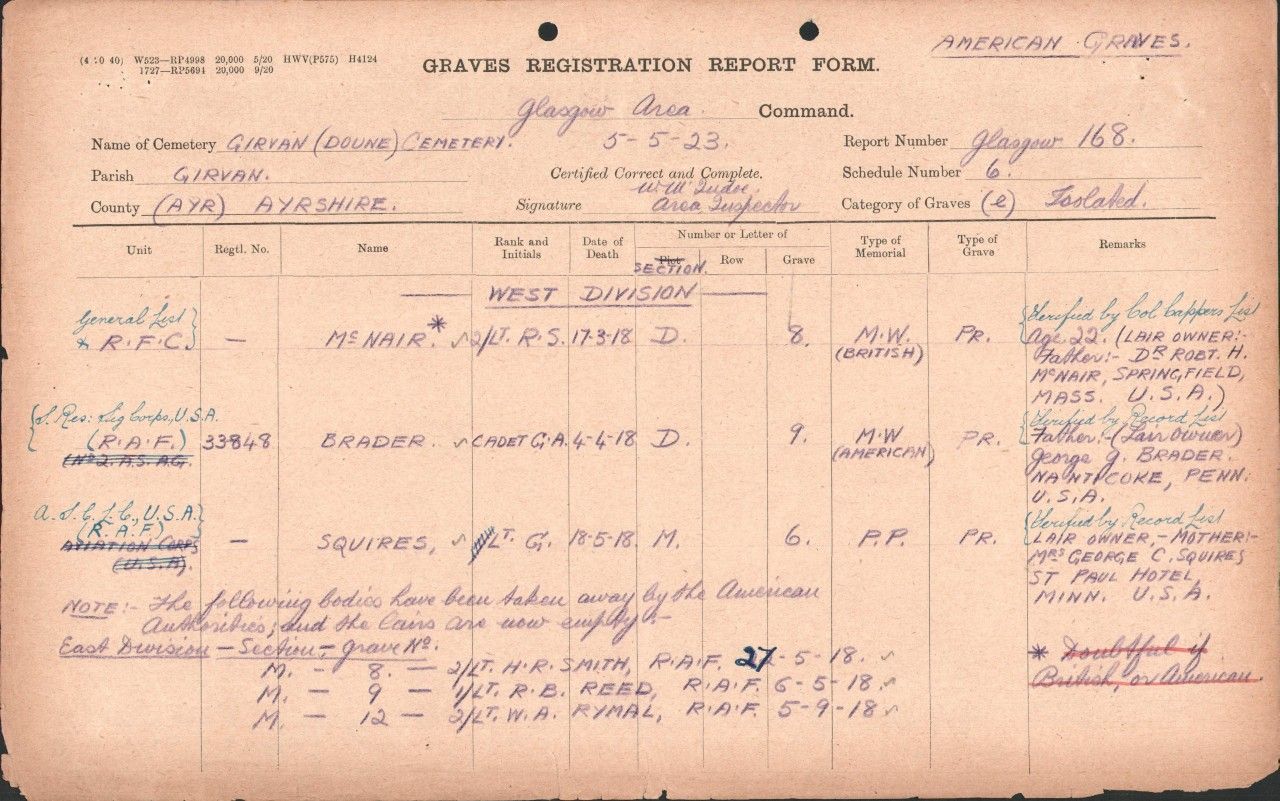 AMERICAN GRAVES.
W523—RP4998 20,000 5/20 HWV(P575) H4124
1727—RP5694 20,000 9/20
GRAVES REGISTRATION REPORT FORM.
Glasgow Area. Command.
Name of Cemetery GIRVAN (DOUNE) CEMETERY. 5-5-23. Report Number Glasgow 168.
Parish GIRVAN. Certified Correct and Complete. Schedule Number 6.
County (AYR) AYRSHIRE. Signature Area Inspector Category of Graves (e) Isolated.
Unit Regtl. No. Name Rank and Initials Date of Death Number or Letter of Plot SECTION. Row Grave Type of Memorial Type of Grave Remarks
WEST DIVISION
General List & R.F.C. — McNAIR.* 2/LT. R.S. 17-3-18 D. 8. M.W. (BRITISH) PR. Verified by Col Cappers List
Age 22. (LAIR OWNER:-
Father:- DR ROBT. H.
McNAIR, SPRINGFIELD,
MASS. U.S.A.)
S. Res: Sig Corps, U.S.A.
(R.A.F.) 33848 BRADER. CADET G.A. 4-4-18 D. 9. M.W (AMERICAN) PR. Verified by Record List
(No 2. A.S. A.G. Father:- (Lair owner)
George G. BRADER.
NANTICOKE, PENN:
U.S.A.
A.S.C.L.C., U.S.A.
(R.A.F.)
AVIATION CORPS (U.S.A). — SQUIRES, LT. G. 18-5-18. M. 6. P.P. PR. Verified by Record List
LAIR OWNER,- MOTHER:-
MRS GEORGE C. SQUIRES
ST PAUL HOTEL,
MINN. U.S.A.
NOTE:- The following bodies have been taken away by the American
Authorities; and the lairs are now empty:-
East Division — Section — Grave No.
M. — 8. — 2/LT. H.R. SMITH, R.A.F. 27-5-18.
M. — 9 — 1/LT. R.B. REED, R.A.F. 6-5-18.
M. — 12 — 2/LT. W.A. RYMAL, R.A.F. 5-9-18
* Doubtful if
British, or American.